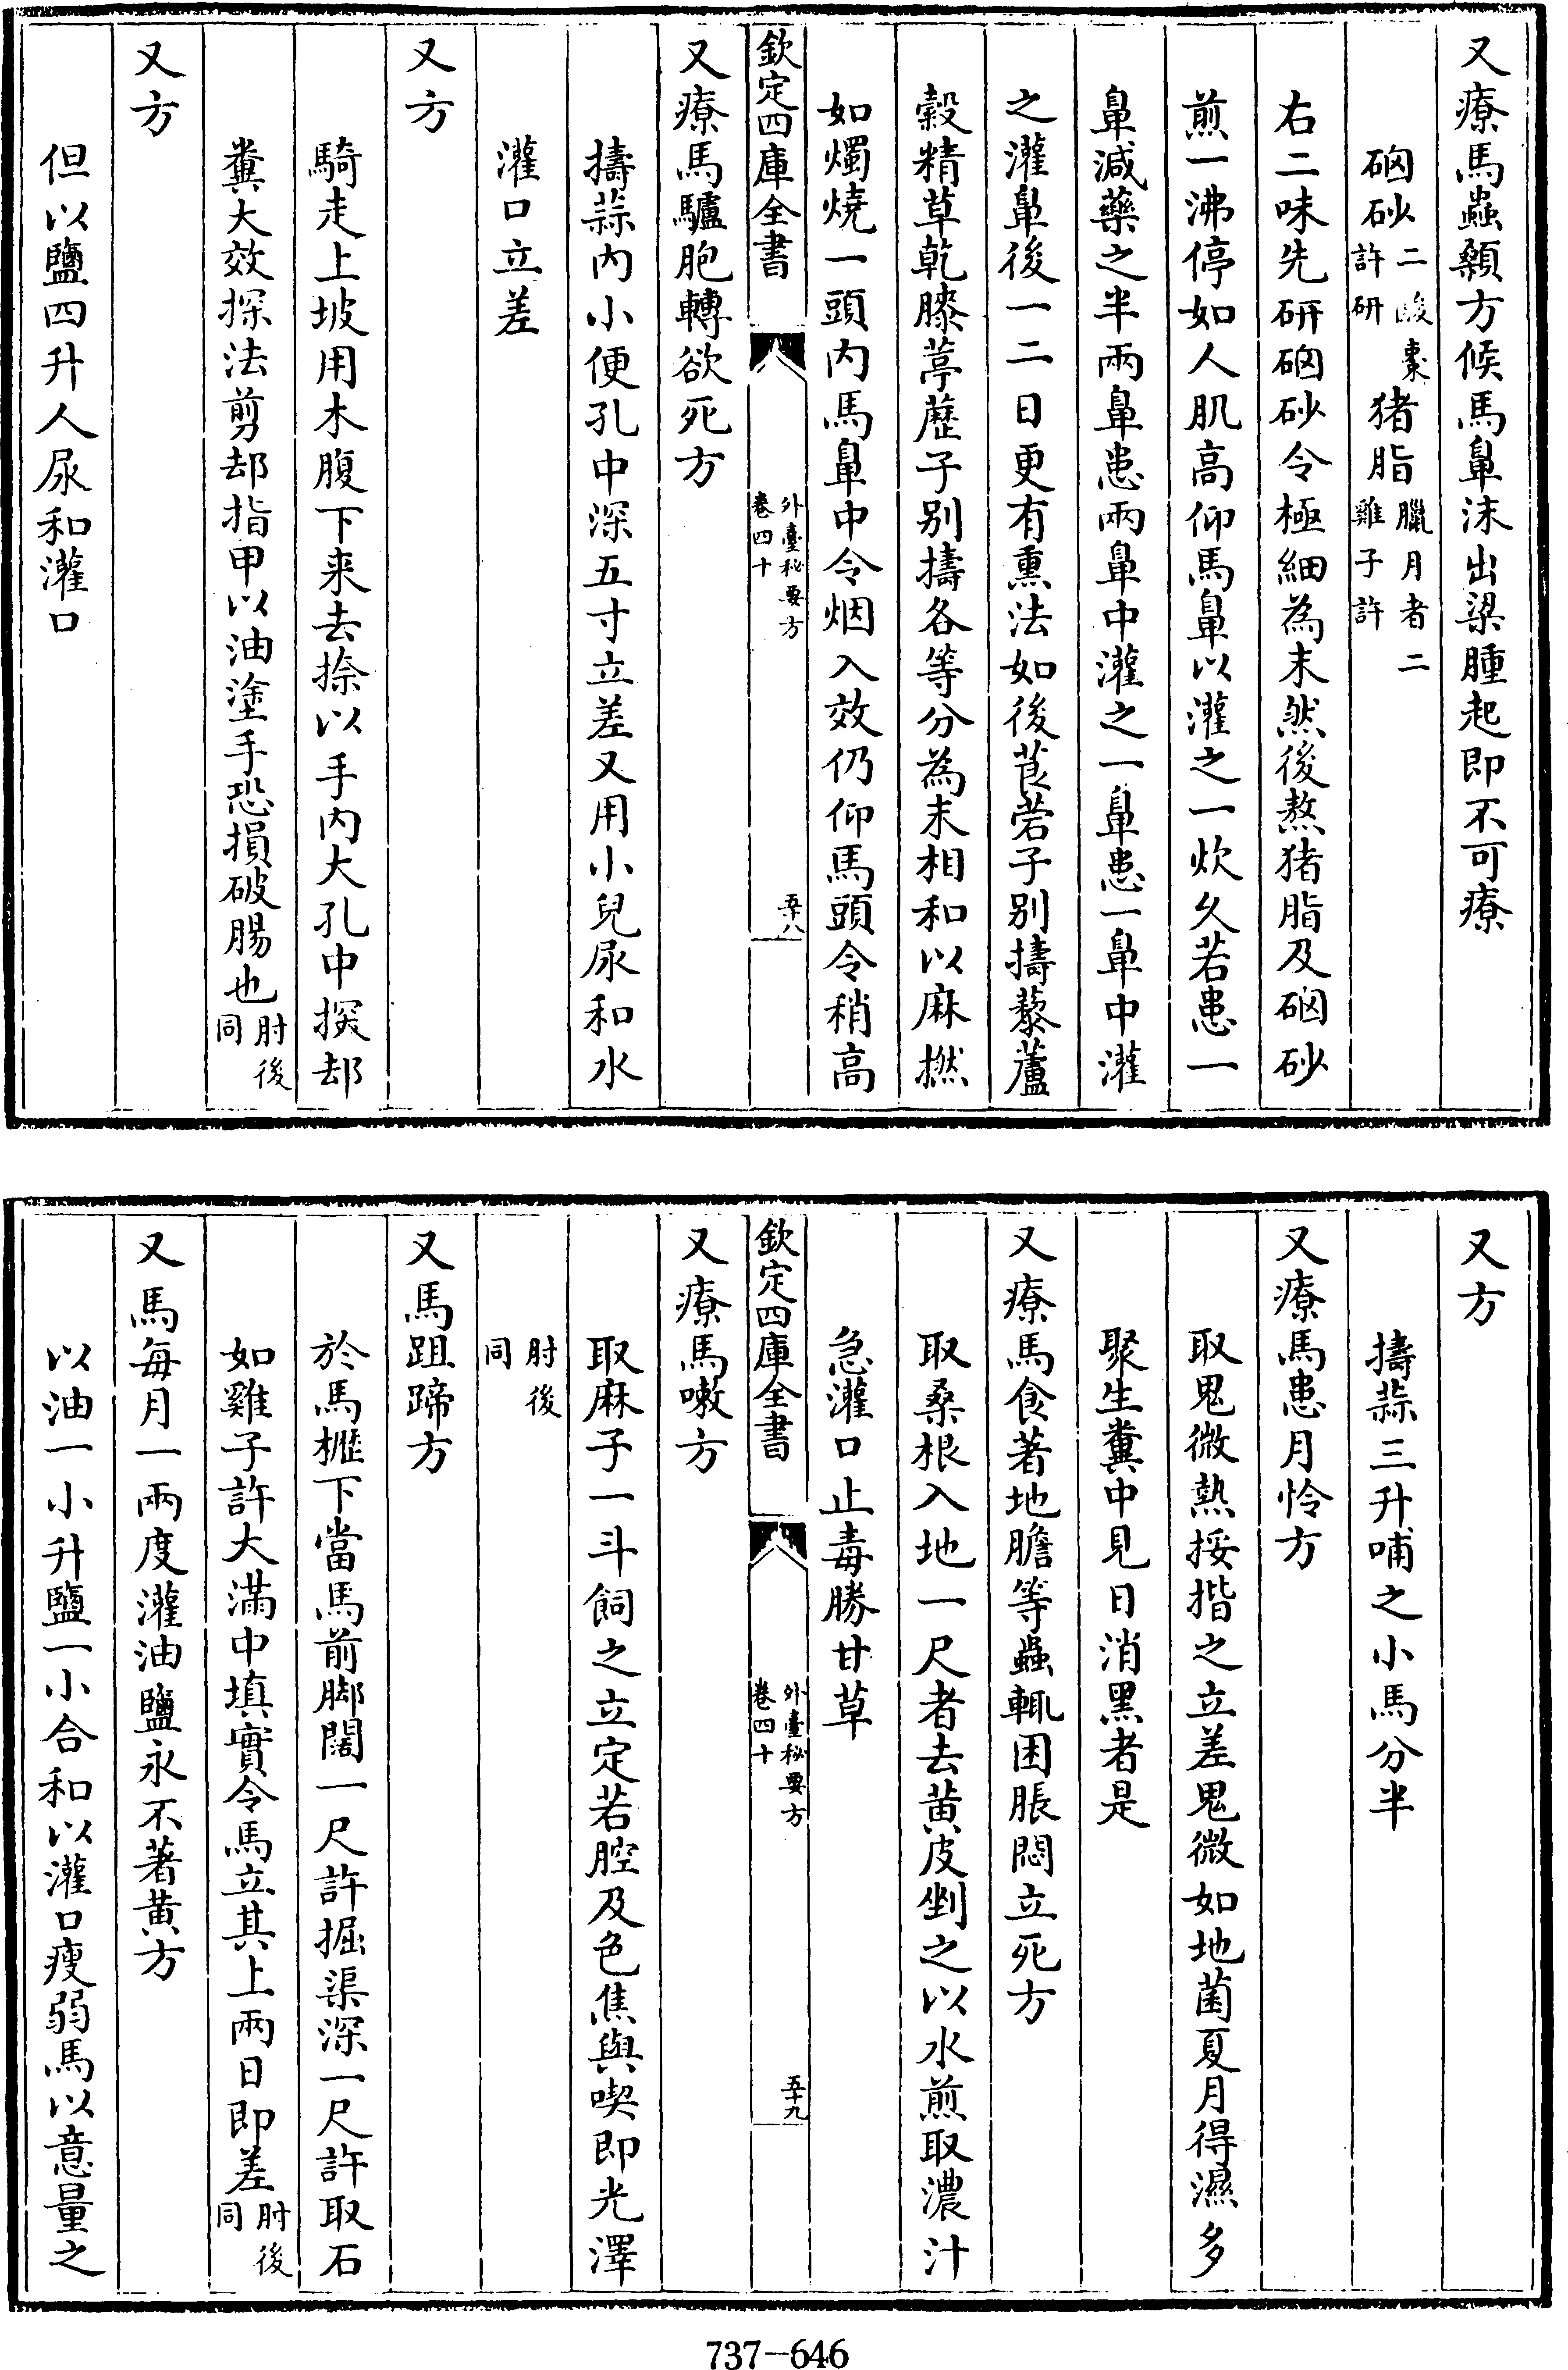 又療馬蟲顙方候馬鼻沫出梁腫起即不可療
硇砂二酸棗許研猪脂臘月者二雞子許
右二味先研硇砂令極細為末然後熬猪脂及硇砂
煎一沸停如人肌高仰馬鼻以灌之一炊久若患一
鼻減藥之半兩鼻患兩鼻中灌之一鼻患一鼻中灌
之灌鼻後一二日更有熏法如後莨菪子别擣藜蘆
穀精草乾膝葶藶子别擣各等分為末相和以麻撚
如燭燒一頭内馬鼻中令烟入效仍仰馬頭令稍高
欽定四庫全書
外臺秘要方
卷四十
五十八
又療馬驢胞轉欲死方
擣蒜内小便孔中深五寸立差又用小兒尿和水
灌口立差
又方
騎走上坡用木腹下来去捺以手内大孔中探却
糞大效探法剪却指甲以油塗手恐損破腸也肘後同
又方
但以鹽四升人尿和灌口
又方
擣蒜三升哺之小馬分半
又療馬患月㤔方
取鬼微熱挼揩之立差鬼微如地菌夏月得濕多
聚生糞中見日消黑者是
又療馬食著地膽等蟲輒困脹悶立死方
取桑根入地一尺者去黄皮剉之以水煎取濃汁
急灌口止毒勝甘草
欽定四庫全書
外臺秘要方
卷四十
五十九
又療馬嗽方
取麻子一斗飼之立定若腔及色焦與喫即光澤
肘後同
又馬跙蹄方
於馬櫪下當馬前脚闊一尺許掘渠深一尺許取石
如雞子許大滿中填實令馬立其上兩日即差肘後同
又馬每月一兩度灌油鹽永不著黄方
以油一小升鹽一小合和以灌口瘦弱馬以意量之
737-646